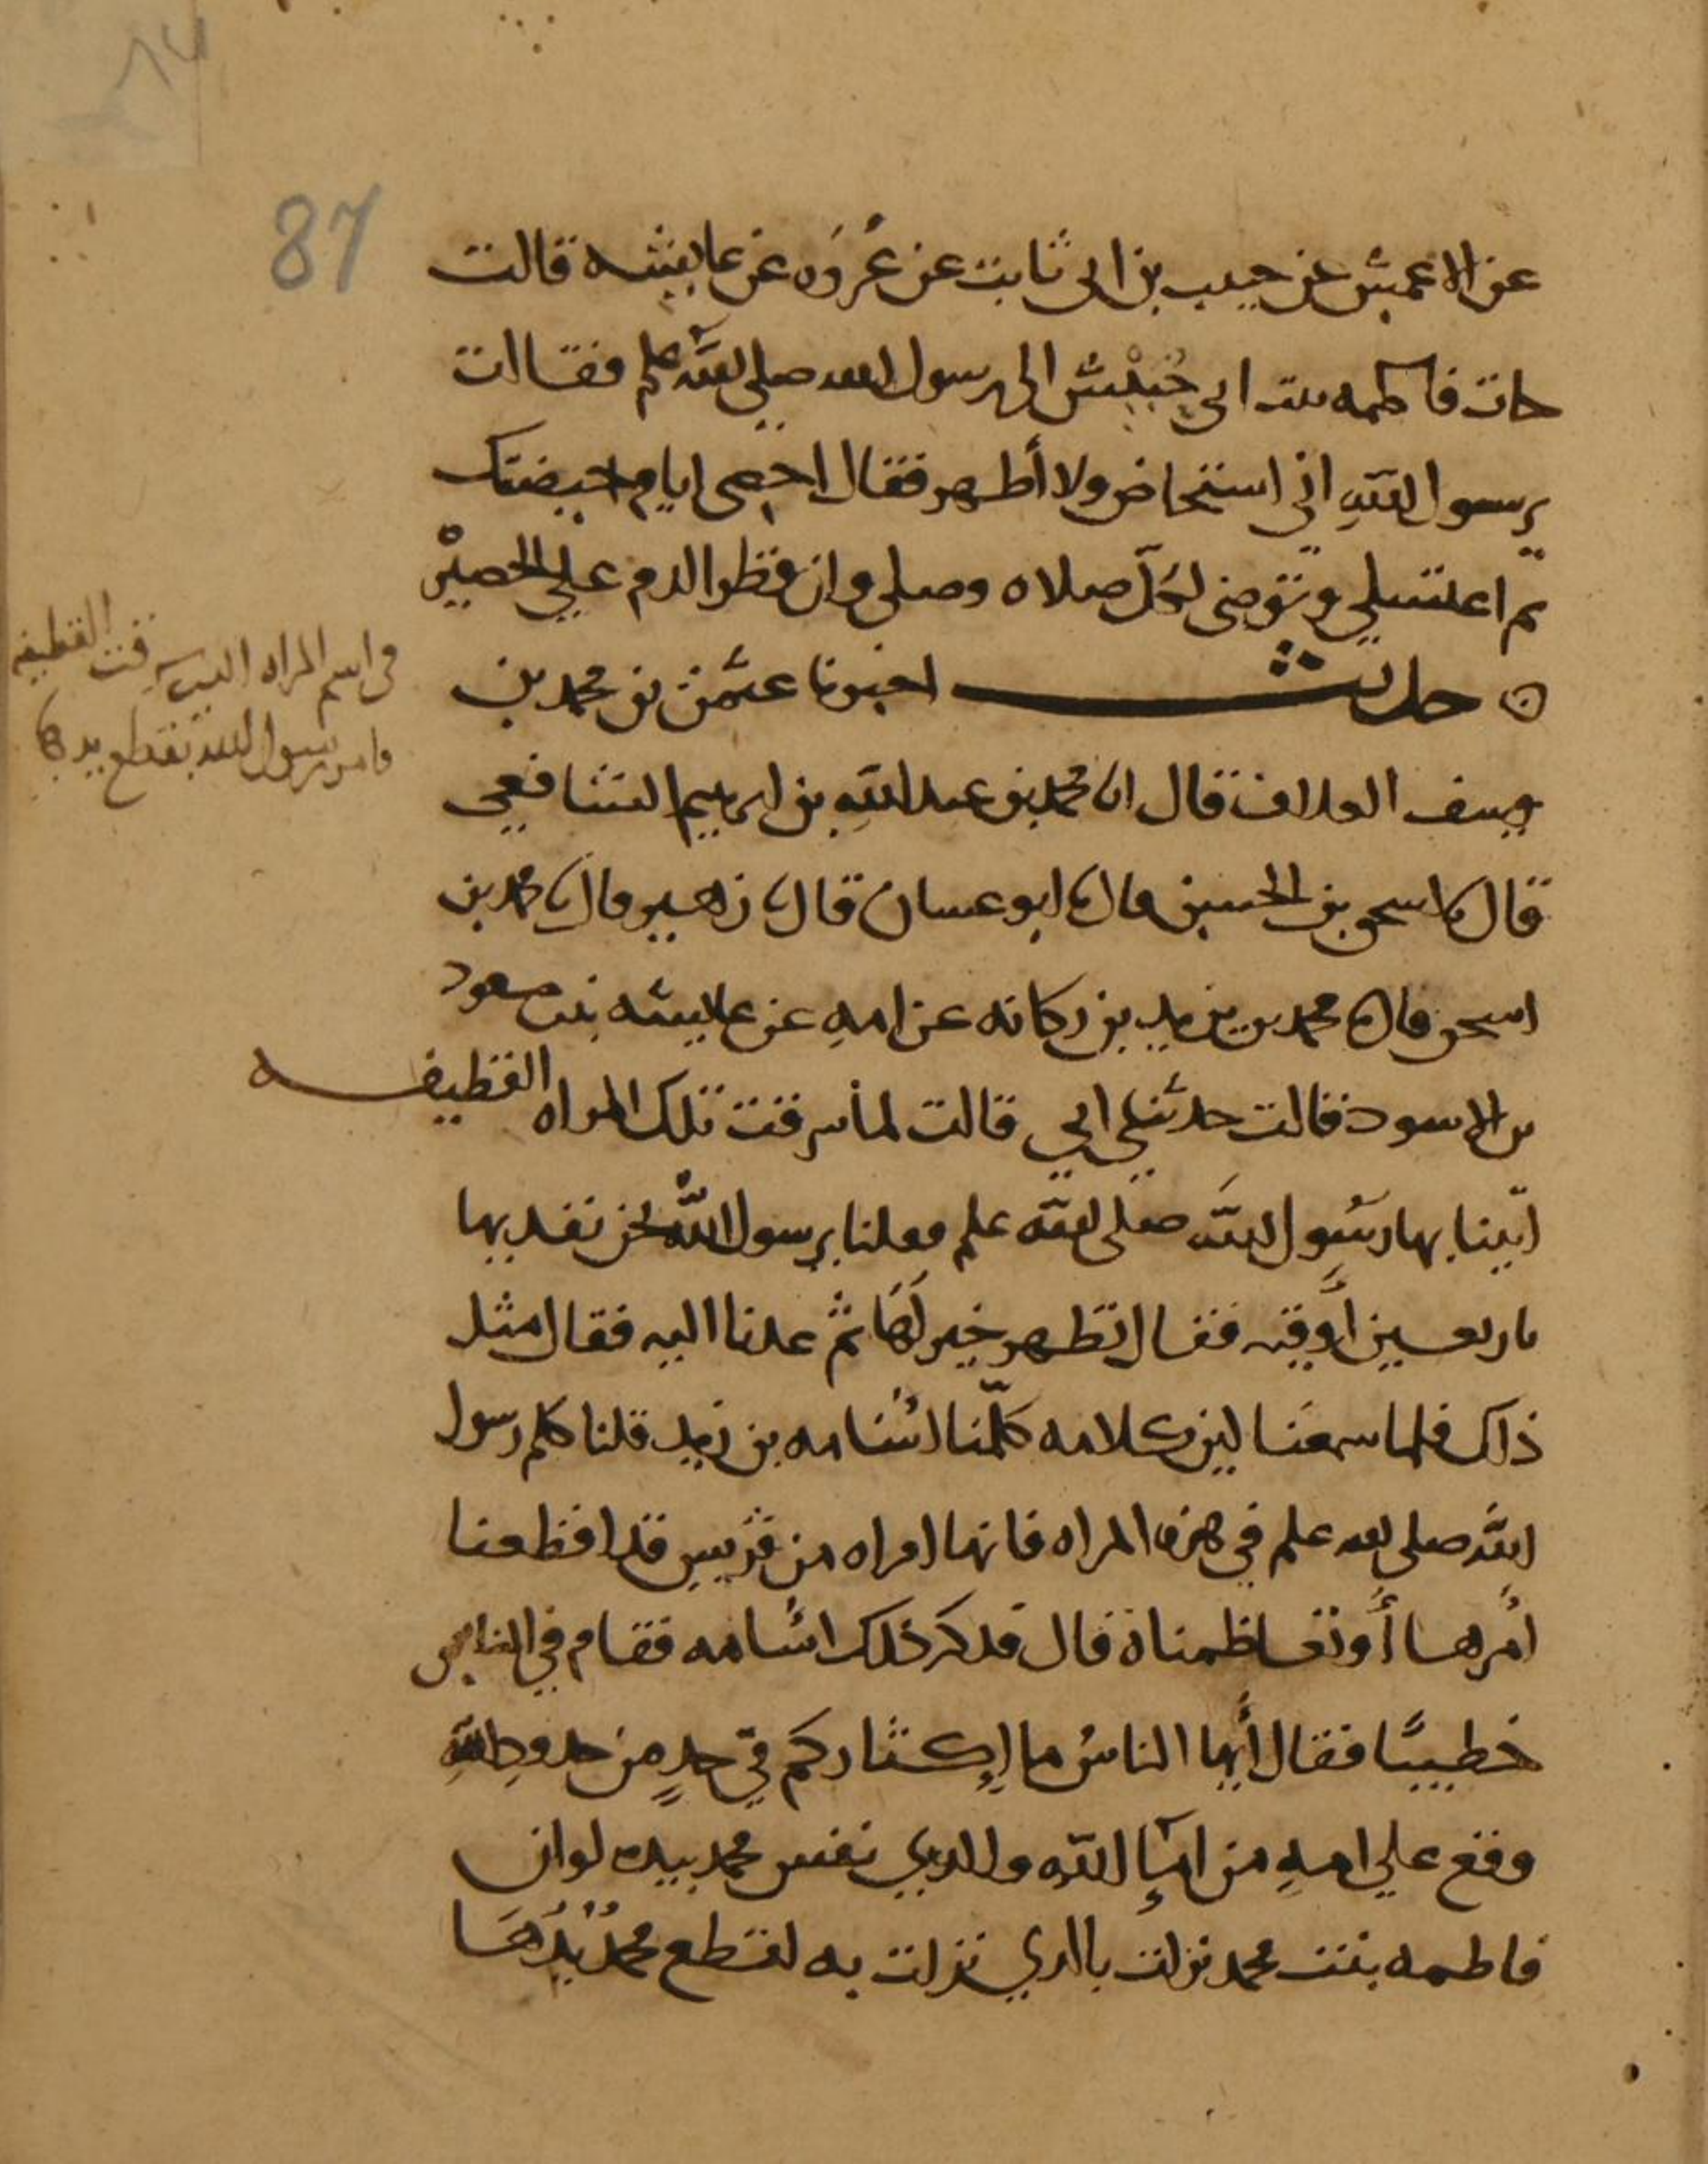 87
عن الاعمش عن حبيب بن ابى ثابت عن عُروَه عن عايشه قالت
جات فاطمه بنت ابي حُبيْش الى رسول الله صلى الله علم فقالت
يرسول اللهِ انى استحاض ولا أطهر فقال اجعى ايام حيضتك
ثم اغتسلي وتوضى لكلّ صلاه وصلى وان قطر الدم علي الحصيْر
حديث اخبرنا عثمن بن محمد بن
يوسف العلاف قال انا محمد بن عبد اللهِ بن ابرهيم الشافعي
قال نا اسحق بن الحسين قال نا ابو غسان قال نا زهير قال نا محمد بن
اسحق قال نا محمد بن يزيد بن ركانه عن امهِ عن عايشه بنت مسعود
بن الاسود قالت حدثني ابي قالت لما سرقت تلك المراه القطيفه
اتينا بها رسُول اللهَ صلى الله علم فقلنا يرسول اللهُ نحن نفديها
باربعين أُوقيه فقال تطهر خير لَهَا ثم عدنا اليه فقال مثل
ذاك فلما سمعنا لين كلامه كلّمنا اسُامه بن زيد قلنا كلم رسول
اللهَ صلى الله علم في هذه المراه فانها امراه من قريش قد افظعنا
أمرها أو تعاظمناه قال فذكر ذلك اسُامه فقام في الناس
خطيبًا فقال أيها الناسُ ما إكثاركم في حدٍ من حدودِ اللهِ
وقع علي امهِ من امآءِ الله والدي نفس محمد بيده لو ان
فاطمه بنت محمد نزلت بالدي نزلت به لقطع محمدُ يدَهَا
في اسم المراه التي سرقت القطيفه
فامر رسول الله بقطع يدها